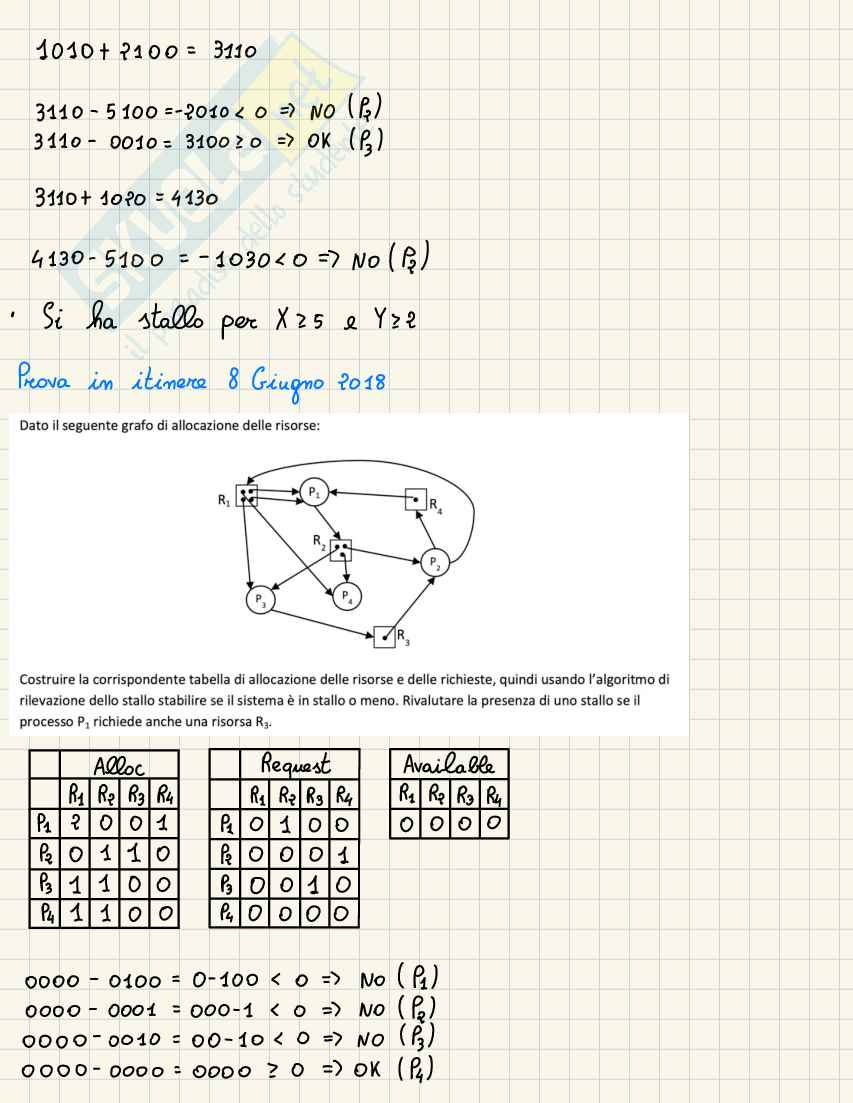 1010 + 2100 = 3110
3110 - 5100 = -2010 < 0 => NO (P2)
3110 - 0010 = 3100 ≥ 0 => OK (P3)
3110 + 1020 = 4130
4130 - 5100 = -1030 < 0 => NO (P2)
· Si ha stallo per X ≥ 5 e Y ≥ 2
Prova in itinere 8 Giugno 2018
Dato il seguente grafo di allocazione delle risorse:
R1 P1 R4
R2 P2
P3 P4
R3
Costruire la corrispondente tabella di allocazione delle risorse e delle richieste, quindi usando l'algoritmo di
rilevazione dello stallo stabilire se il sistema è in stallo o meno. Rivalutare la presenza di uno stallo se il
processo P1 richiede anche una risorsa R3.
Alloc
R1 R2 R3 R4
P1 2 0 0 1
P2 0 1 1 0
P3 1 1 0 0
P4 1 1 0 0
Request
R1 R2 R3 R4
P1 0 1 0 0
P2 0 0 0 1
P3 0 0 1 0
P4 0 0 0 0
Available
R1 R2 R3 R4
0 0 0 0
0000 - 0100 = 0-100 < 0 => NO (P1)
0000 - 0001 = 000-1 < 0 => NO (P2)
0000 - 0010 = 00-10 < 0 => NO (P3)
0000 - 0000 = 0000 ≥ 0 => OK (P4)